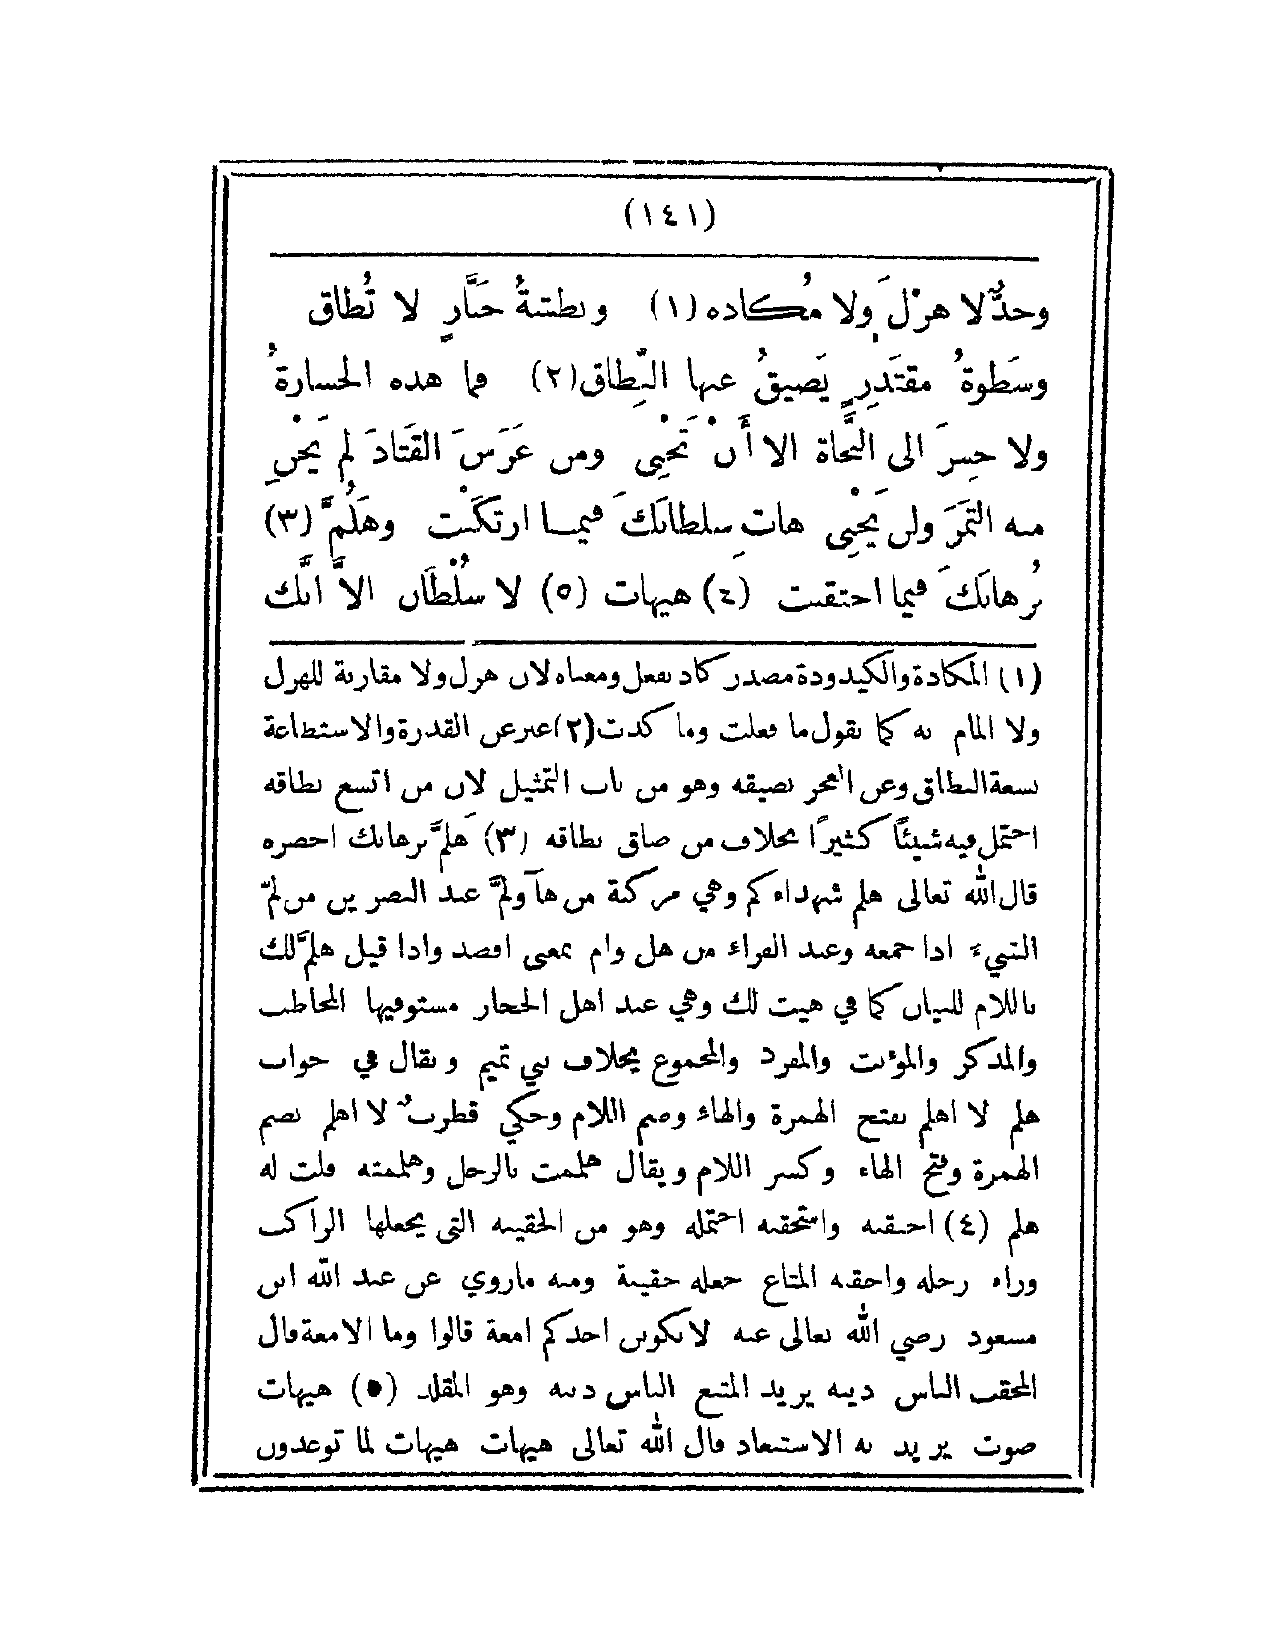 (١٤١)
وجدٌّ لا هزْلَ ولا مُكاده (١) وبطشةُ جَبَّارٍ لا تُطاق
وسَطوةُ مقتَدِرٍ يَضيقُ عنها النِّطاق (٢) فما هذه الجسارةُ
ولا جسرَ الى النَّجاة الا أنْ تَجْنِي ومن غَرَسَ القَتَادَ لم يَجْنِ
منه الثمَرَ ولن يَجْنِي هاتِ سلطانَكَ فيما ارتكَبْت وهَلُمَّ (٣)
بُرهانَكَ فيما احتقبت (٤) هيهات (٥) لا سُلْطَانَ الاَّ انَّك
(١) المكادة والكيدودة مصدر كاد يفعل ومعناه لان هزل ولا مقاربة للهزل
ولا المام به كما يقول ما فعلت وما كدت (٢) عبر عن القدرة والاستطاعة
بسعة النطاق وعن العجز بضيقه وهو من باب التمثيل لان من اتسع نطاقه
احتمل فيه شيئاً كثيرًا بخلاف من ضاق نطاقه (٣) هَلمَّ برهانك احضره
قال الله تعالى هلم شهداءكم وهي مركبة من هآ ولمَّ عند البصريين من لمَّ
الشيء اذا جمعه وعند الفراء من هل وام بمعنى اقصد واذا قيل هلمَّ لك
باللام للبيان كما في هيت لك وهي عند اهل الحجاز مستو فيها المخاطب
والمذكر والمؤنث والمفرد والمجموع بخلاف بني تميم ويقال في جواب
هلم لا اهلم بفتح الهمزة والهاء وضم اللام وحكي قطرب لا اهلم بضم
الهمزة وفتح الهاء وكسر اللام ويقال هلممت بالرجل وهلممته قلت له
هلم (٤) احتقبه واستحقبه احتمله وهو من الحقيبة التي يجعلها الراكب
وراء رحله واحقبه المتاع جعله حقيبة ومنه ماروي عن عبد الله ابن
مسعود رضي الله تعالى عنه لا يكونن احدكم امعة قالوا وما الامعة قال
المحقب الناس دينه يريد المتبع الناس دينه وهو المقلد (٥) هيهات
صوت يريد به الاستبعاد قال الله تعالى هيهات هيهات لما توعدون